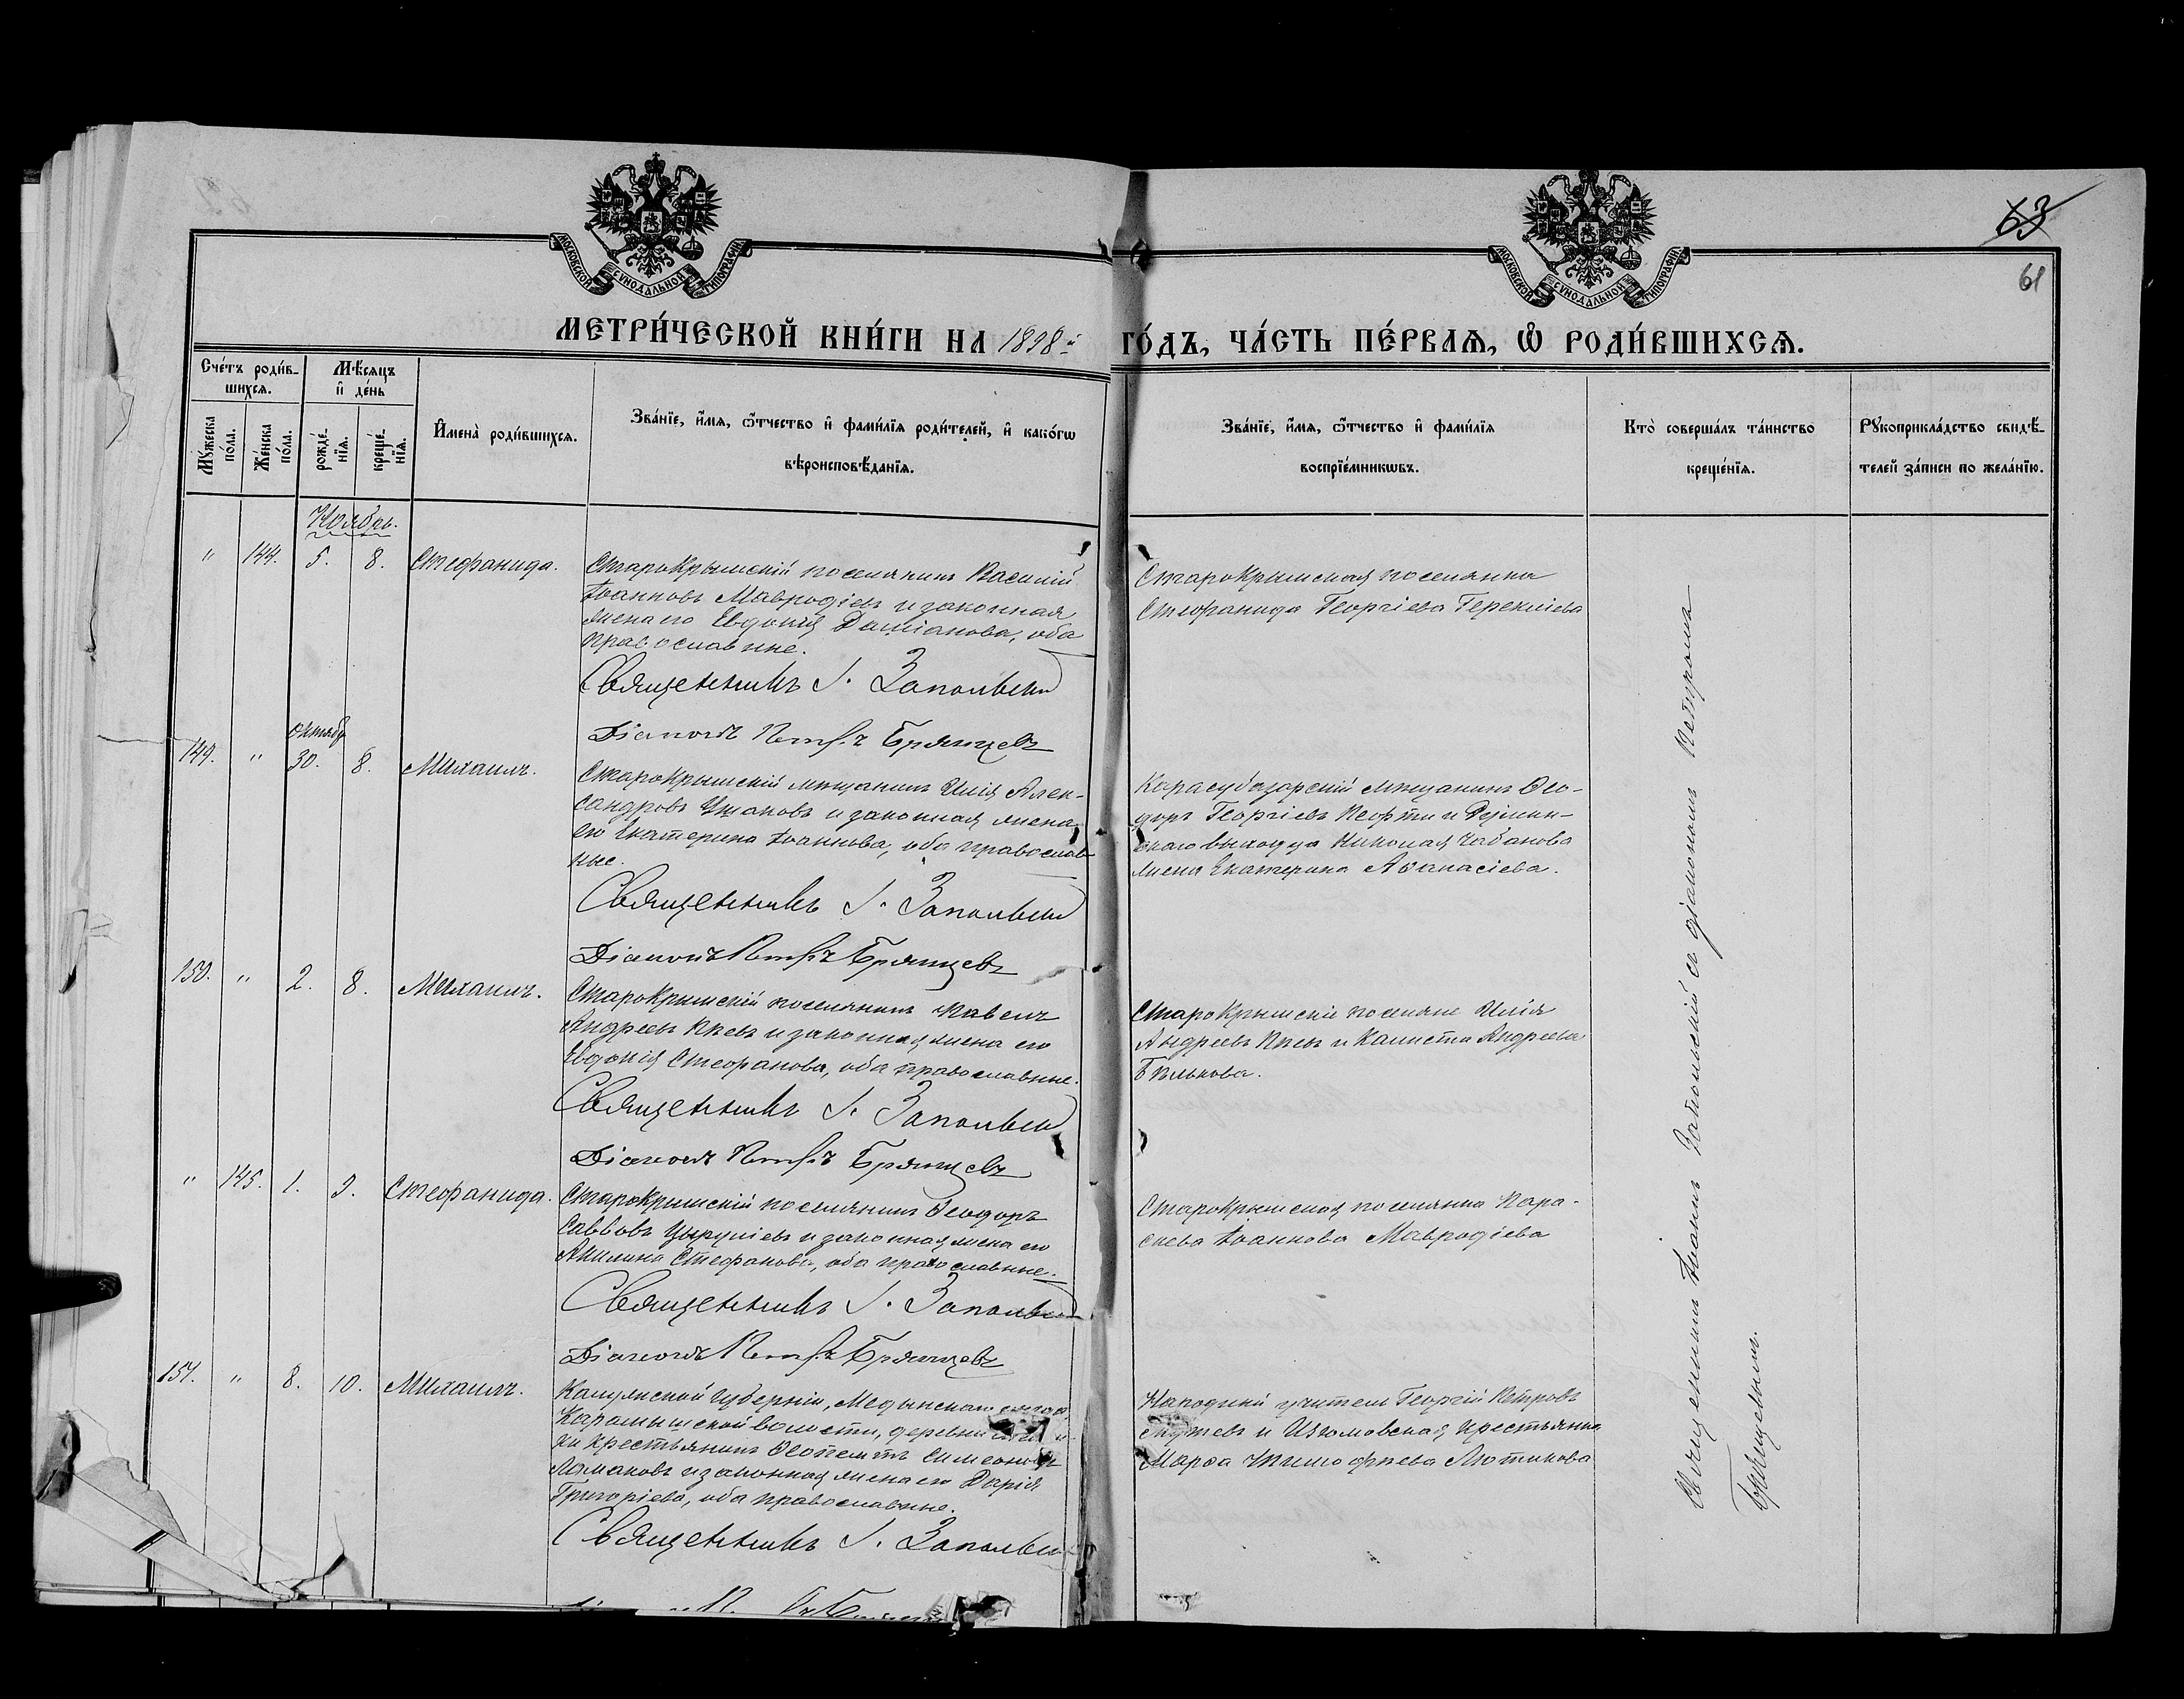 63
61
МОСКОВСКОЙ СѴНОДАЛЬНОЙ ТИПОГРАФІИ
МОСКОВСКОЙ СѴНОДАЛЬНОЙ ТИПОГРАФІИ
МЕТРИ́ЧЕСКОЙ КНИ́ГИ НА 1898й ГО́ДЪ, ЧА́СТЬ ПЕ́РВАѦ, Ѡ҆ РОДИ́ВШИХСѦ.
Сче́тъ роди́в-
шихсѧ.
Мѣ́сѧцъ
и҆ де́нь
Мꙋ́жеска
по́ла.
Же́нска
по́ла.
рожде́-
нїѧ.
креще́-
нїѧ.
И҆мена̀ роди́вшихсѧ.
Зва́нїе, и҆́мѧ, ѻ҆́тчество и҆ фами́лїѧ роди́телей, и҆ како́гѡ
вѣроисповѣ́данїѧ.
Зва́нїе, и҆́мѧ, ѻ҆́тчество и҆ фами́лїѧ
воспрїе́мникѡвъ.
Кто̀ соверша́лъ та́инство
креще́нїѧ.
Рꙋкоприкла́дство свидѣ́-
телей за́писи по жела́нїю.
Ноябрь.
" 144. 5. 8. Стефанида.
Старокрымскій поселянинъ Василій
Іоанновъ Мавродіевъ и законная
жена его Евдокія Даміанова, оба
православные.
Священникъ І. Запольскій
Діаконъ Петръ Брянцевъ
Старокрымская поселянка
Стефанида Георгіева Герекліева
149. " октябр. 30. 8. Михаилъ.
Старокрымскій мѣщанинъ Илія Алек-
сандровъ Ушаковъ и законная жена
его Екатерина Іоаннова, оба православ-
ные.
Священникъ І. Запольскій
Діаконъ Петръ Брянцевъ
Карасубазарскій мѣщанинъ Ѳео-
доръ Георгіевъ
выходца Николая Чабанова
жена Екатерина Аѳанасіева.
150. " 2. 8. Михаилъ.
Старокрымскій поселянинъ Павелъ
Андреевъ и законная жена его
Евдокія Стефанова, оба православные.
Священникъ І. Запольскій
Діаконъ Петръ Брянцевъ
Старокрымскіе поселяне Илія
Андреевъ и Калиста Андреева
Бѣлькова.
" 145. 1. 9. Стефанида.
Старокрымскій поселянинъ Ѳеодоръ
Саввовъ Цыруліевъ и законная жена его
Акилина Стефанова, оба православные.
Священникъ І. Запольскій
Діаконъ Петръ Брянцевъ
Старокрымская поселянка Пара-
скева Іоаннова Мавродіева
151. " 8. 10. Михаилъ.
Калужской губерніи, Медынскаго уѣзда,
Карамышской волости, деревни
ки крестьянинъ Ѳеопемптъ Симеоновъ
Ломаковъ и законная жена его Дарія
Григоріева, оба православные.
Священникъ І. Запольскій
Народный учитель Георгій Петровъ
и Изюмовская крестьянка
Марѳа Тимофеева Лютикова
Священникъ Іоаннъ Запольскій съ діакономъ Петромъ
Брянцевымъ.